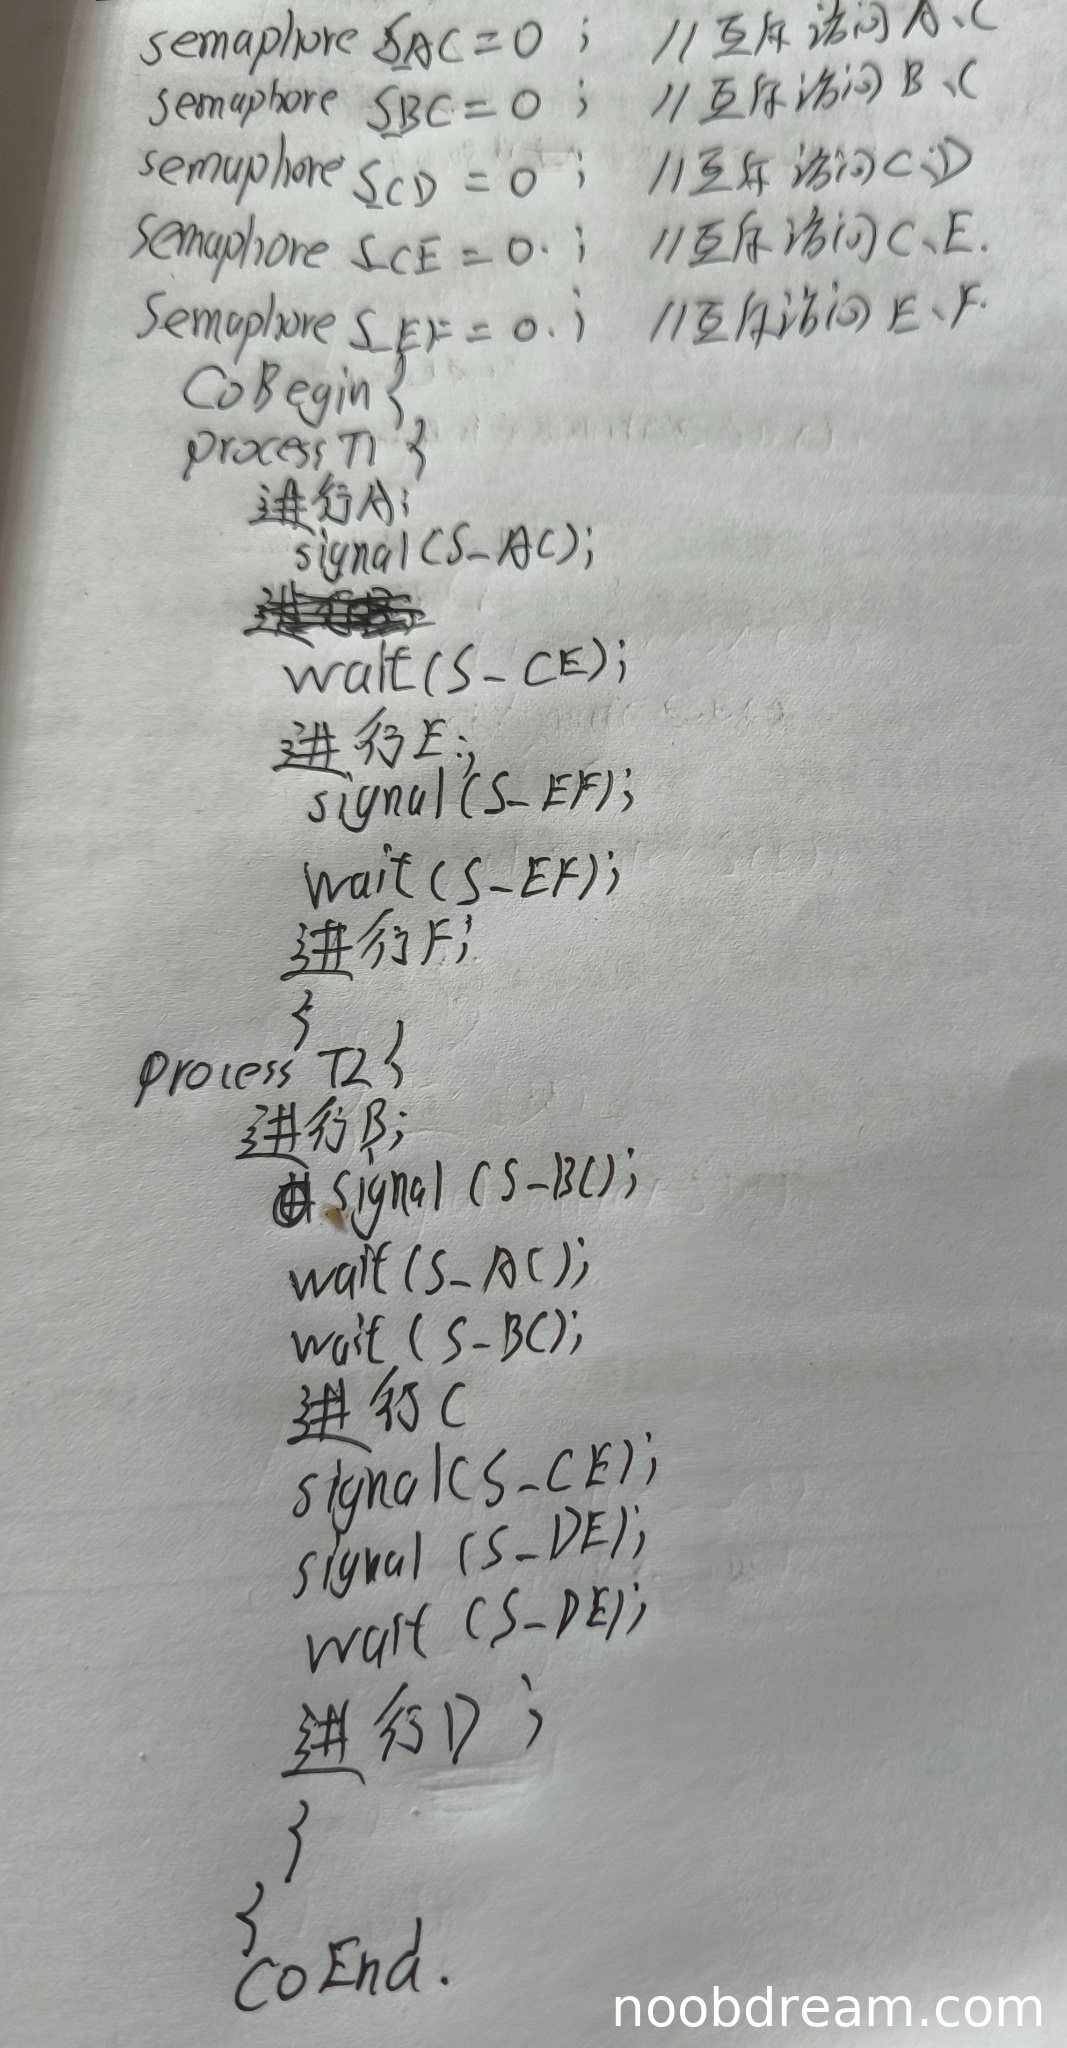 semaphore S_AC = 0 ; //互斥访问A、C
semaphore S_BC = 0 ; //互斥访问B、C
semaphore S_CD = 0 ; //互斥访问C、D
semaphore S_CE = 0. ; //互斥访问C、E.
semaphore S_EF = 0. ; //互斥访问E、F.
CoBegin {
process T1 {
进行A;
signal (S_AC);
wait (S_CE);
进行E:;
signal (S_EF);
wait (S_EF);
进行F;
}
process T2 {
进行B;
signal (S_BC);
wait (S_AC);
wait (S_BC);
进行C
signal (S_CE);
signal (S_DE);
wait (S_DE);
进行D ;
}
}
CoEnd.
noobdream.com